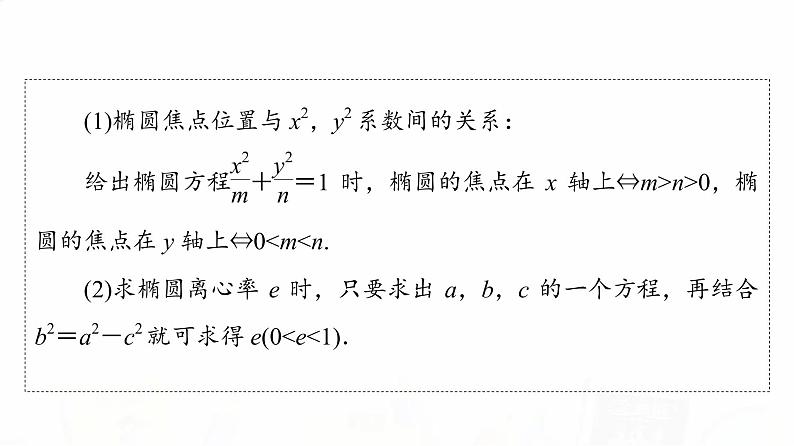 (1)椭圆焦点位置与 x²，y² 系数间的关系：
给出椭圆方程x²/m＋y²/n＝1 时，椭圆的焦点在 x 轴上⇔m>n>0，椭
圆的焦点在 y 轴上⇔0<m<n.
(2)求椭圆离心率 e 时，只要求出 a，b，c 的一个方程，再结合
b²＝a²－c² 就可求得 e(0<e<1)．